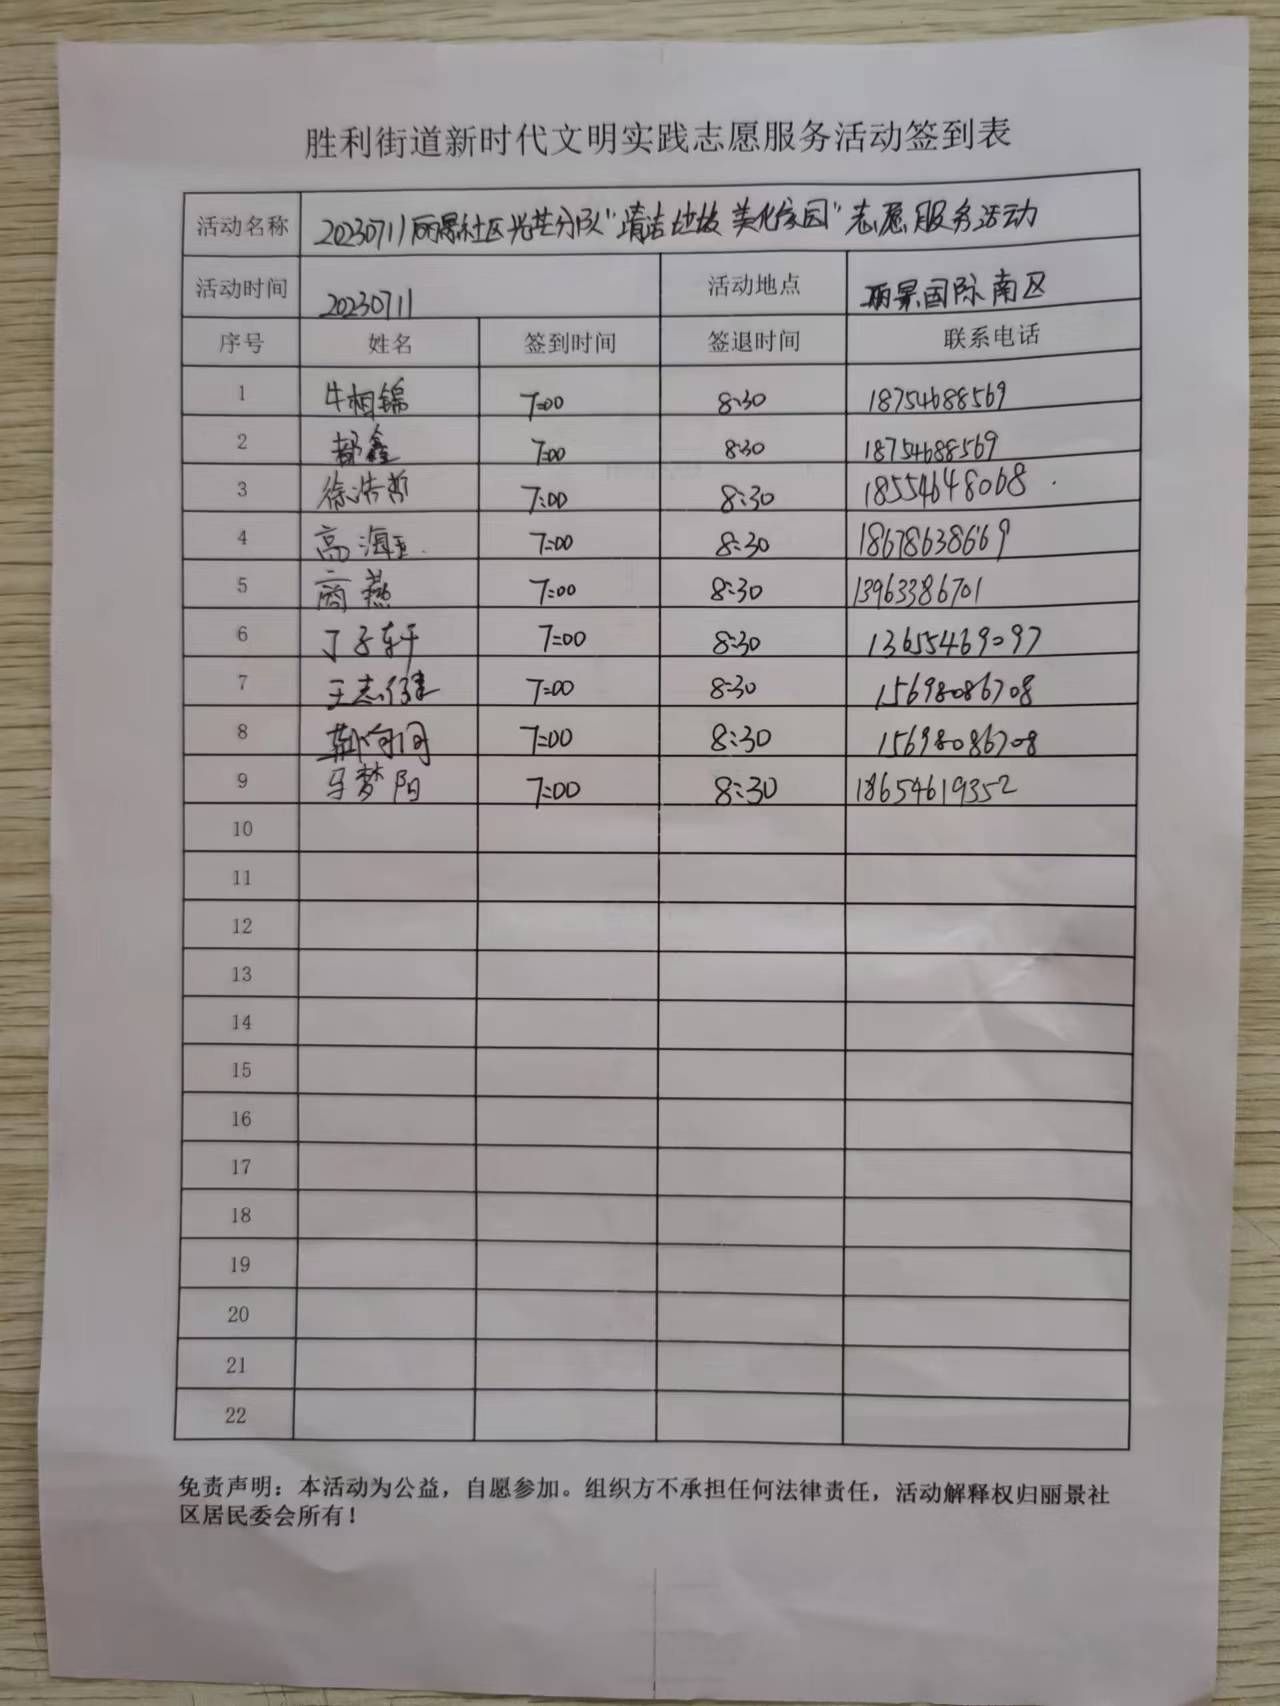 胜利街道新时代文明实践志愿服务活动签到表
活动名称 20230711丽景社区光芒分队“清洁地故 美化家园”志愿服务活动
活动时间 20230711 活动地点 丽景国际南区
序号 姓名 签到时间 签退时间 联系电话
1 牛相锦 7:00 8:30 18754688569
2 郝鑫 7:00 8:30 18754688569
3 徐浩哲 7:00 8:30 18554648068
4 高海玉 7:00 8:30 18678638669
5 商燕 7:00 8:30 13963386701
6 丁子轩 7:00 8:30 13655469097
7 王志健 7:00 8:30 15698086708
8 7:00 8:30 15698086708
9 马梦阳 7:00 8:30 18654619352
10
11
12
13
14
15
16
17
18
19
20
21
22
免责声明：本活动为公益，自愿参加。组织方不承担任何法律责任，活动解释权归丽景社
区居民委会所有！